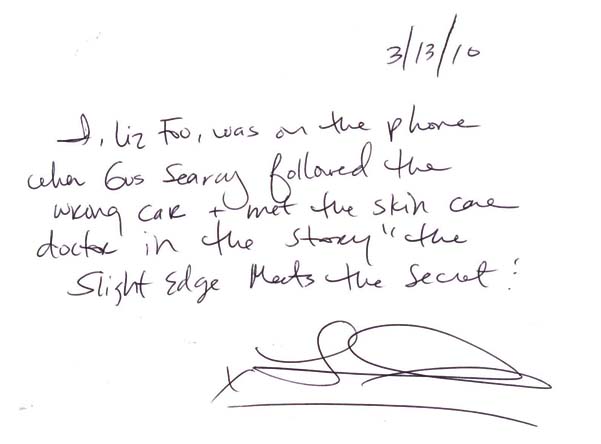 3/13/10
I, Liz Foo, was on the phone
when Gus Searcy followed the
wrong car + met the skin care
doctor in the story "the
Slight Edge Meets the Secret."
x